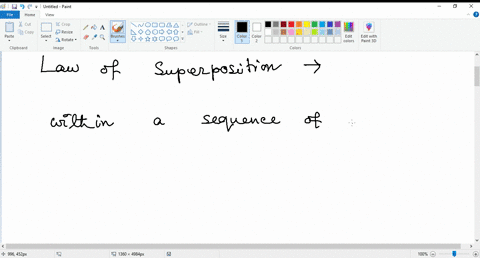 Untitled - Paint
File Home View
Paste
Select
Crop
Resize
Rotate
Brushes
Outline
Fill
Size
Color 1
Color 2
Edit colors
Edit with Paint 3D
Clipboard Image Tools Shapes Colors
Law of Superposition →
within a sequence of
1380 × 4984px
100%